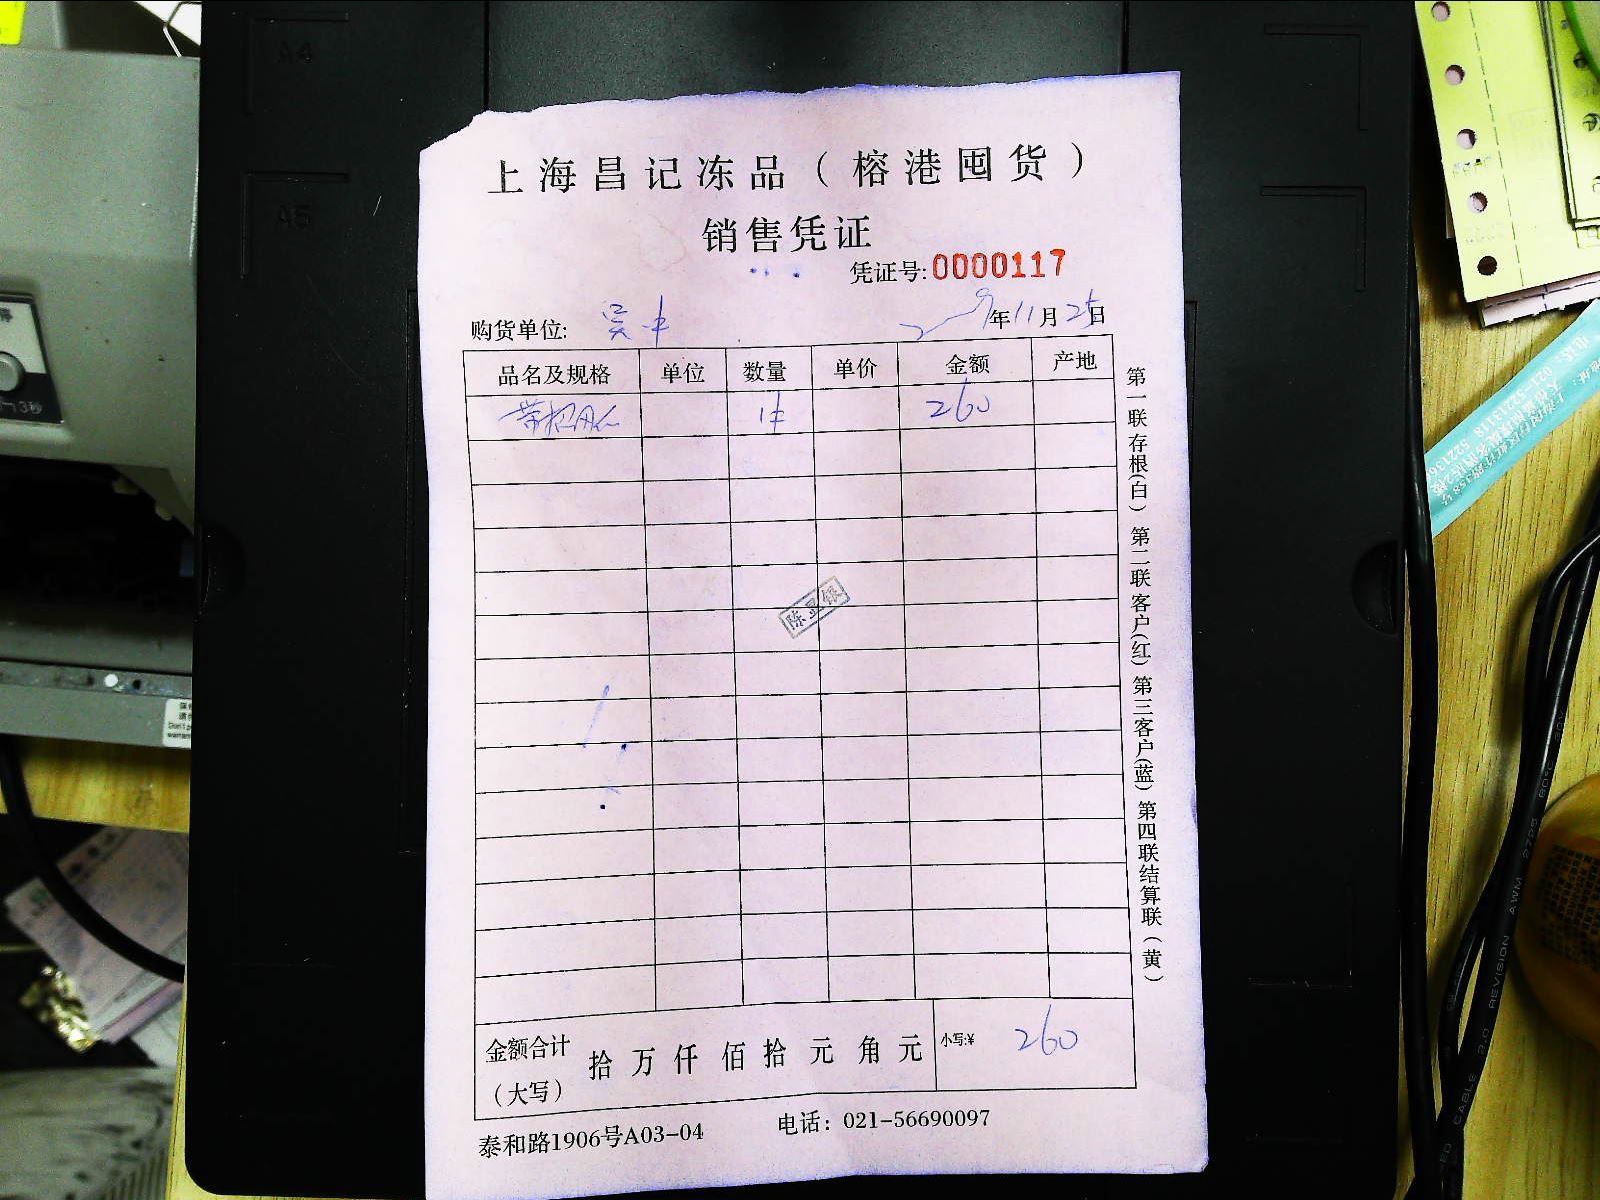 上海昌记冻品（榕港囤货）
销售凭证
凭证号:0000117
购货单位: 吴中 年11月25日
品名及规格 单位 数量 单价 金额 产地
1件 260
陈显银
金额合计（大写） 拾 万 仟 佰 拾 元 角 元 小写:¥ 260
泰和路1906号A03-04 电话：021-56690097
第一联存根(白) 第二联客户(红) 第三客户(蓝) 第四联结算联(黄)
A4
A5